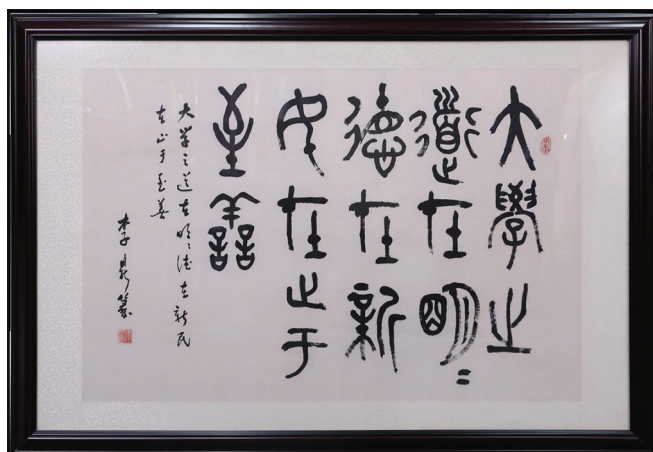 大學之
道在明〻
德在新
民在止于
至善
大学之道在明〻德在新民
在止于至善
李